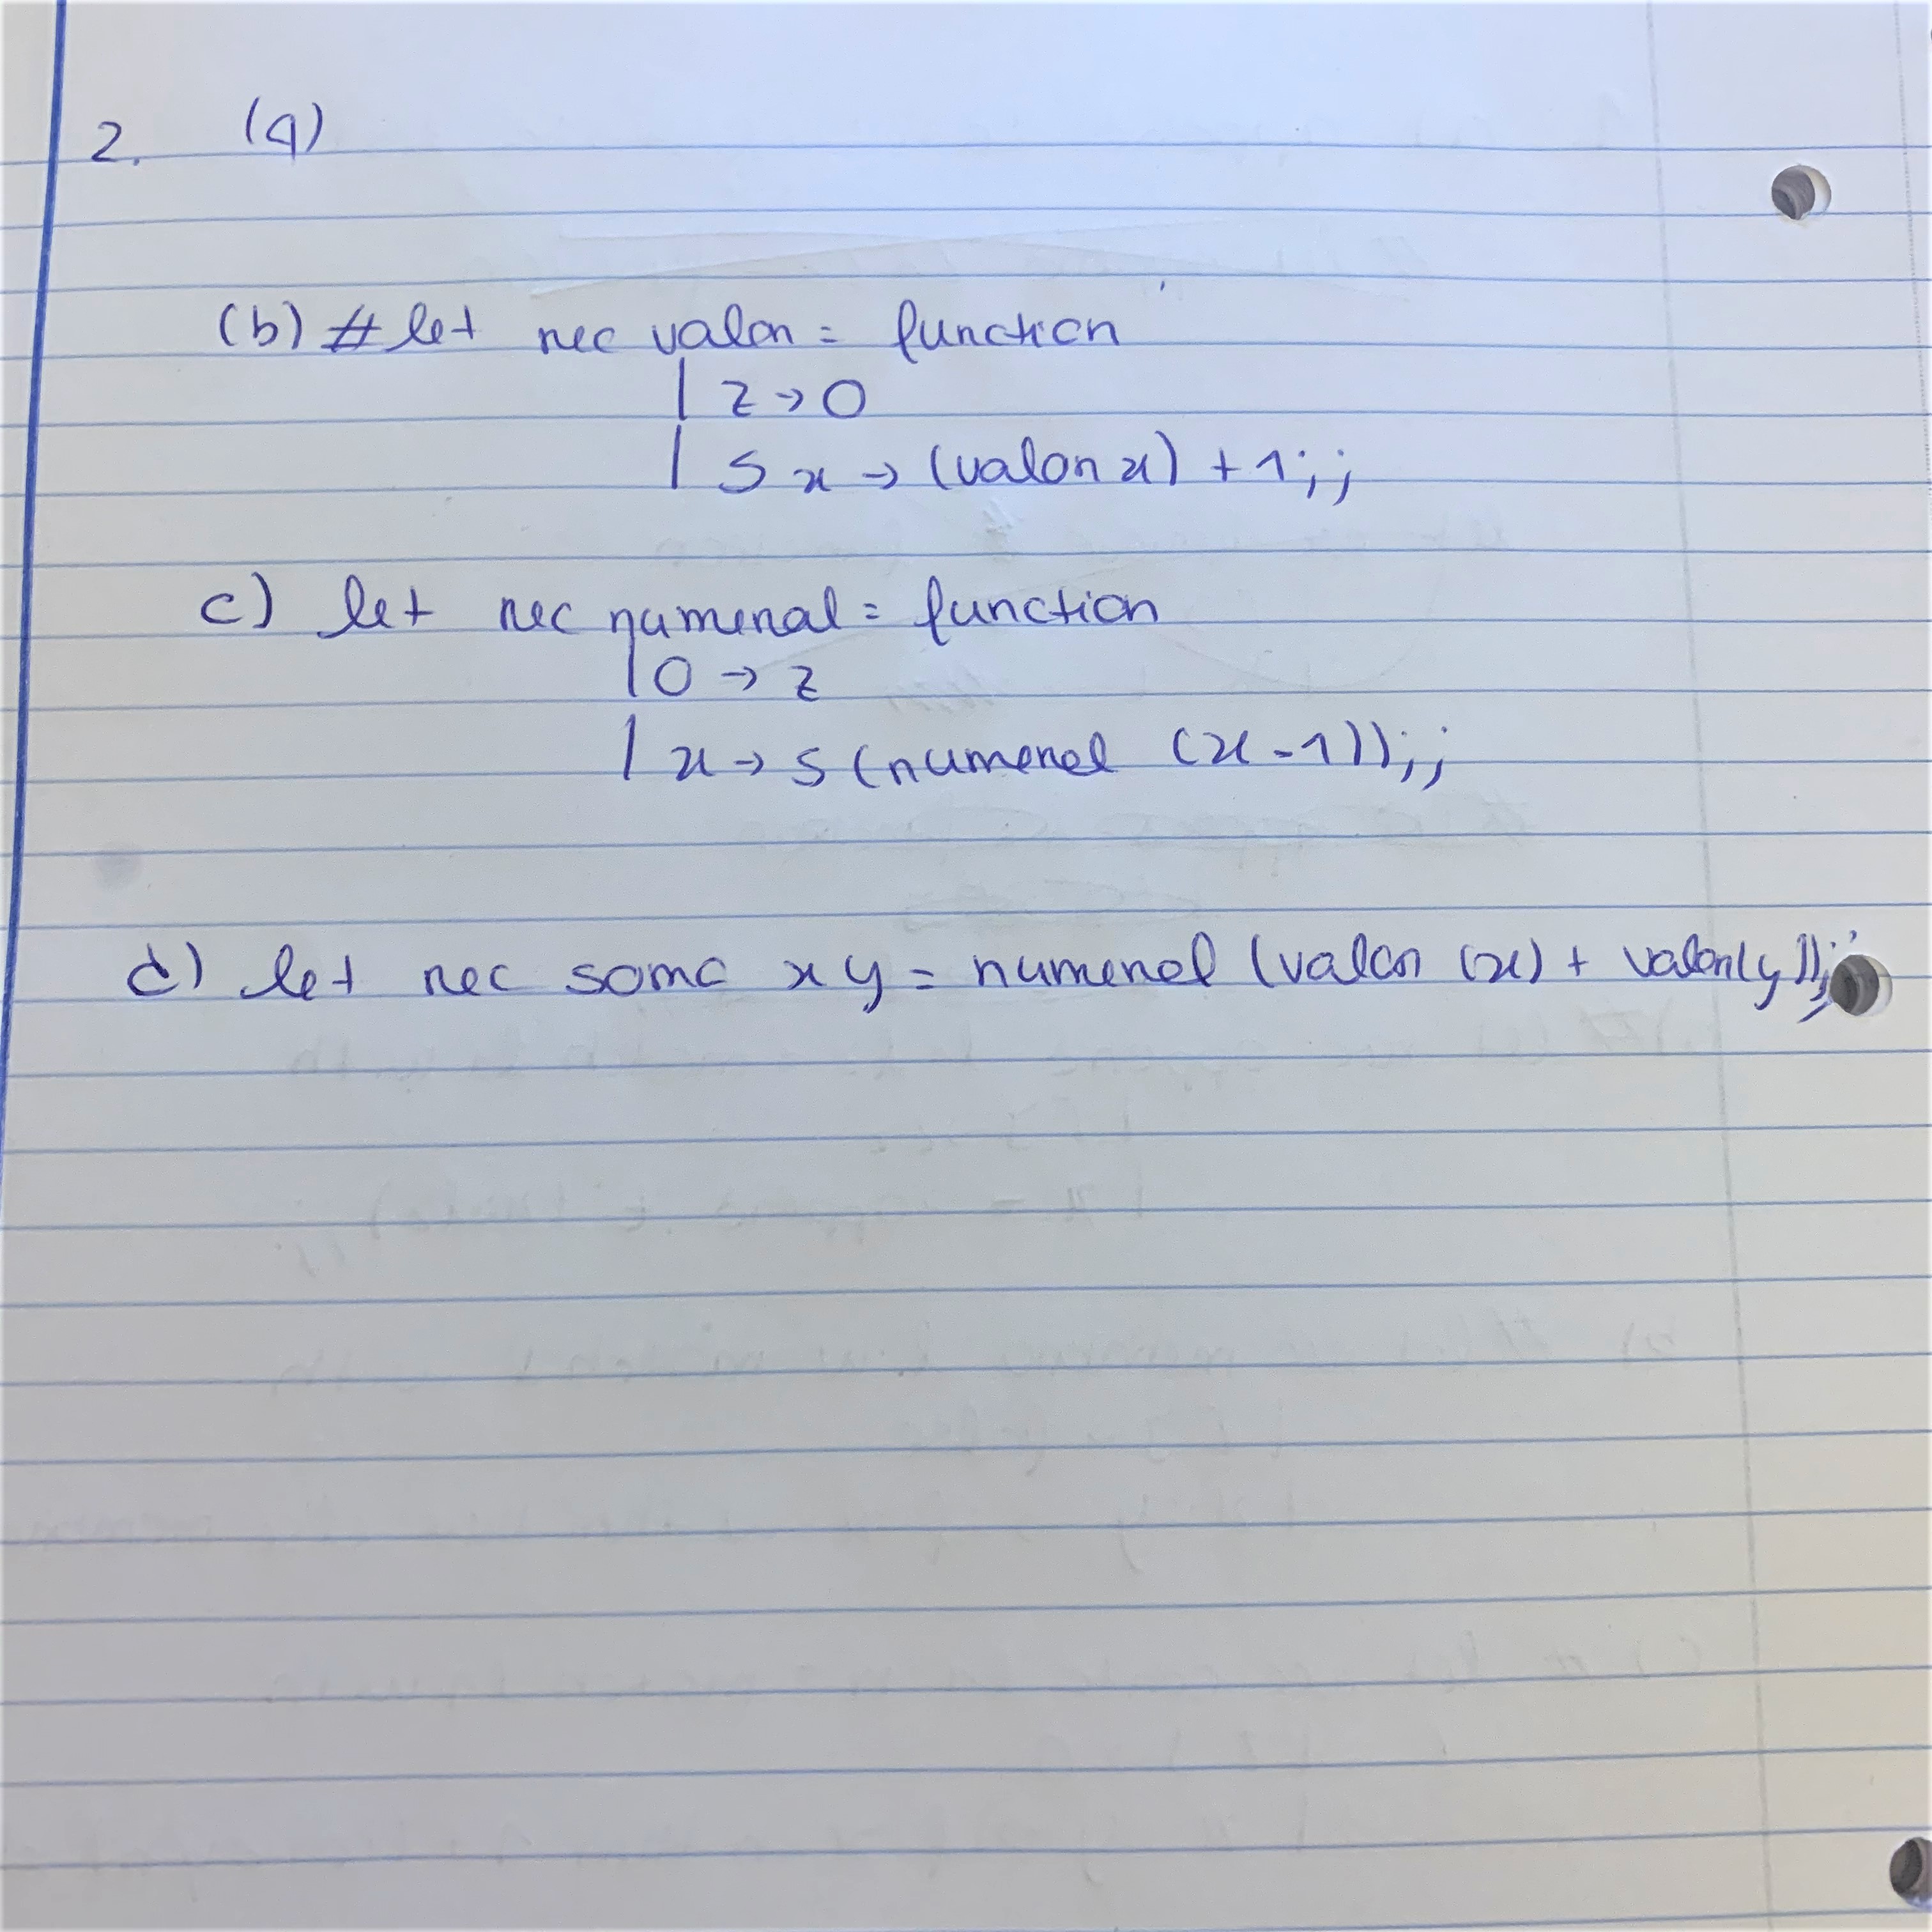 2. (a)
(b) # let rec valor = function
| Z → 0
| S x → (valor x) + 1;;
c) let rec numeral = function
| 0 → Z
| x → S (numeral (x - 1));;
d) let rec soma x y = numeral (valor (x) + valor(y));;